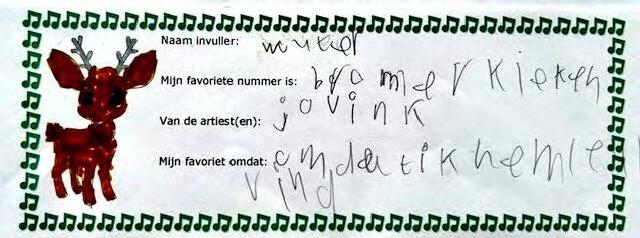 Naam invuller: wouter
Mijn favoriete nummer is: bromer kieken
Van de artiest(en): jovink
Mijn favoriet omdat: omdat ik hem leu
vind